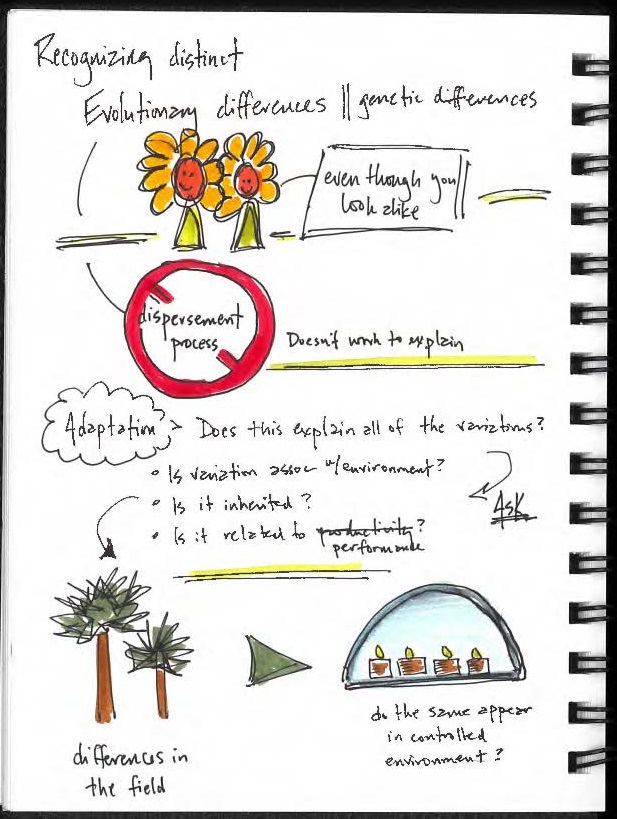 Recognizing distinct
Evolutionary differences || genetic differences
even though you
look alike
dispersement
process
Doesn't work to explain
Adaptation > Does this explain all of the variations?
• Is variation assoc w/environment?
• Is it inherited?
Ask
• Is it related to productivity?
performance
differences in
the field
do the same appear
in controlled
environment?